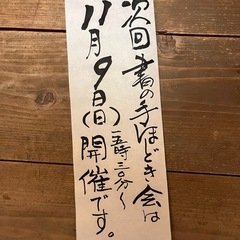 次回 書の手ほどき会は
11月9日(日)
一五時三〇分〜
開催です。